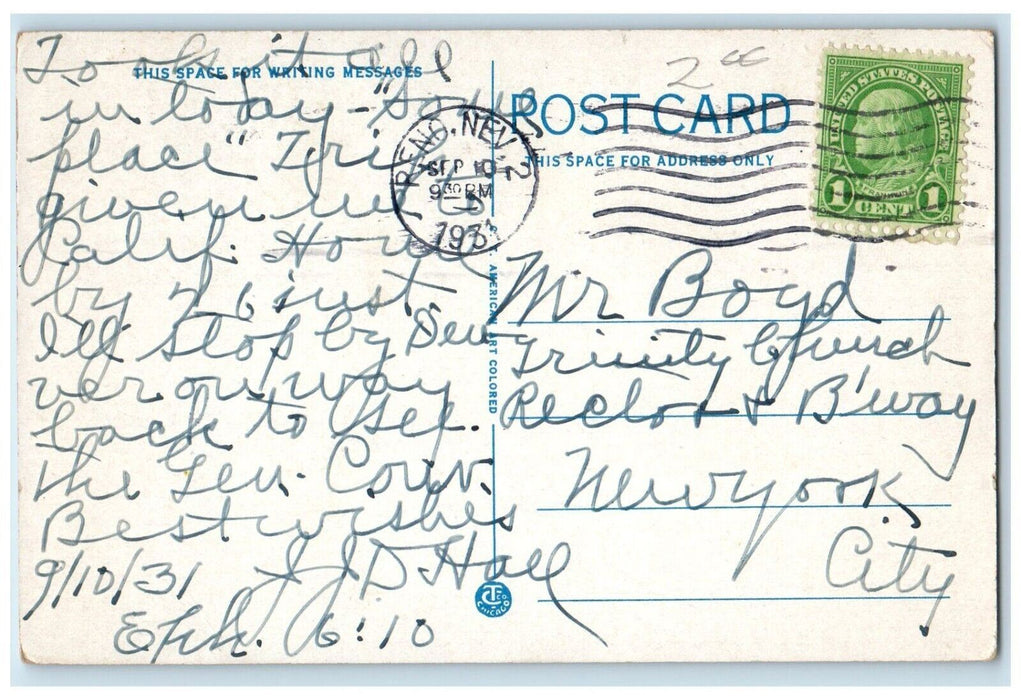 Took it all
THIS SPACE FOR WRITING MESSAGES
in today - "Same
place" Trip
given me
Calif. Home
by 26 inst
I'll stop by Den
ver on way
back to
the Gen. Conv.
Best wishes
J J D Hall
9/10/31
Eph. 6:10
RENO, NEV. 2
SEP 10
9 30 PM
1931
2 00
POST CARD
THIS SPACE FOR ADDRESS ONLY
UNITED STATES POSTAGE
1 CENT 1
AMERICAN ART COLORED
Mr Boyd
Trinity Church
Rector & B'way
New york
City
CHICAGO